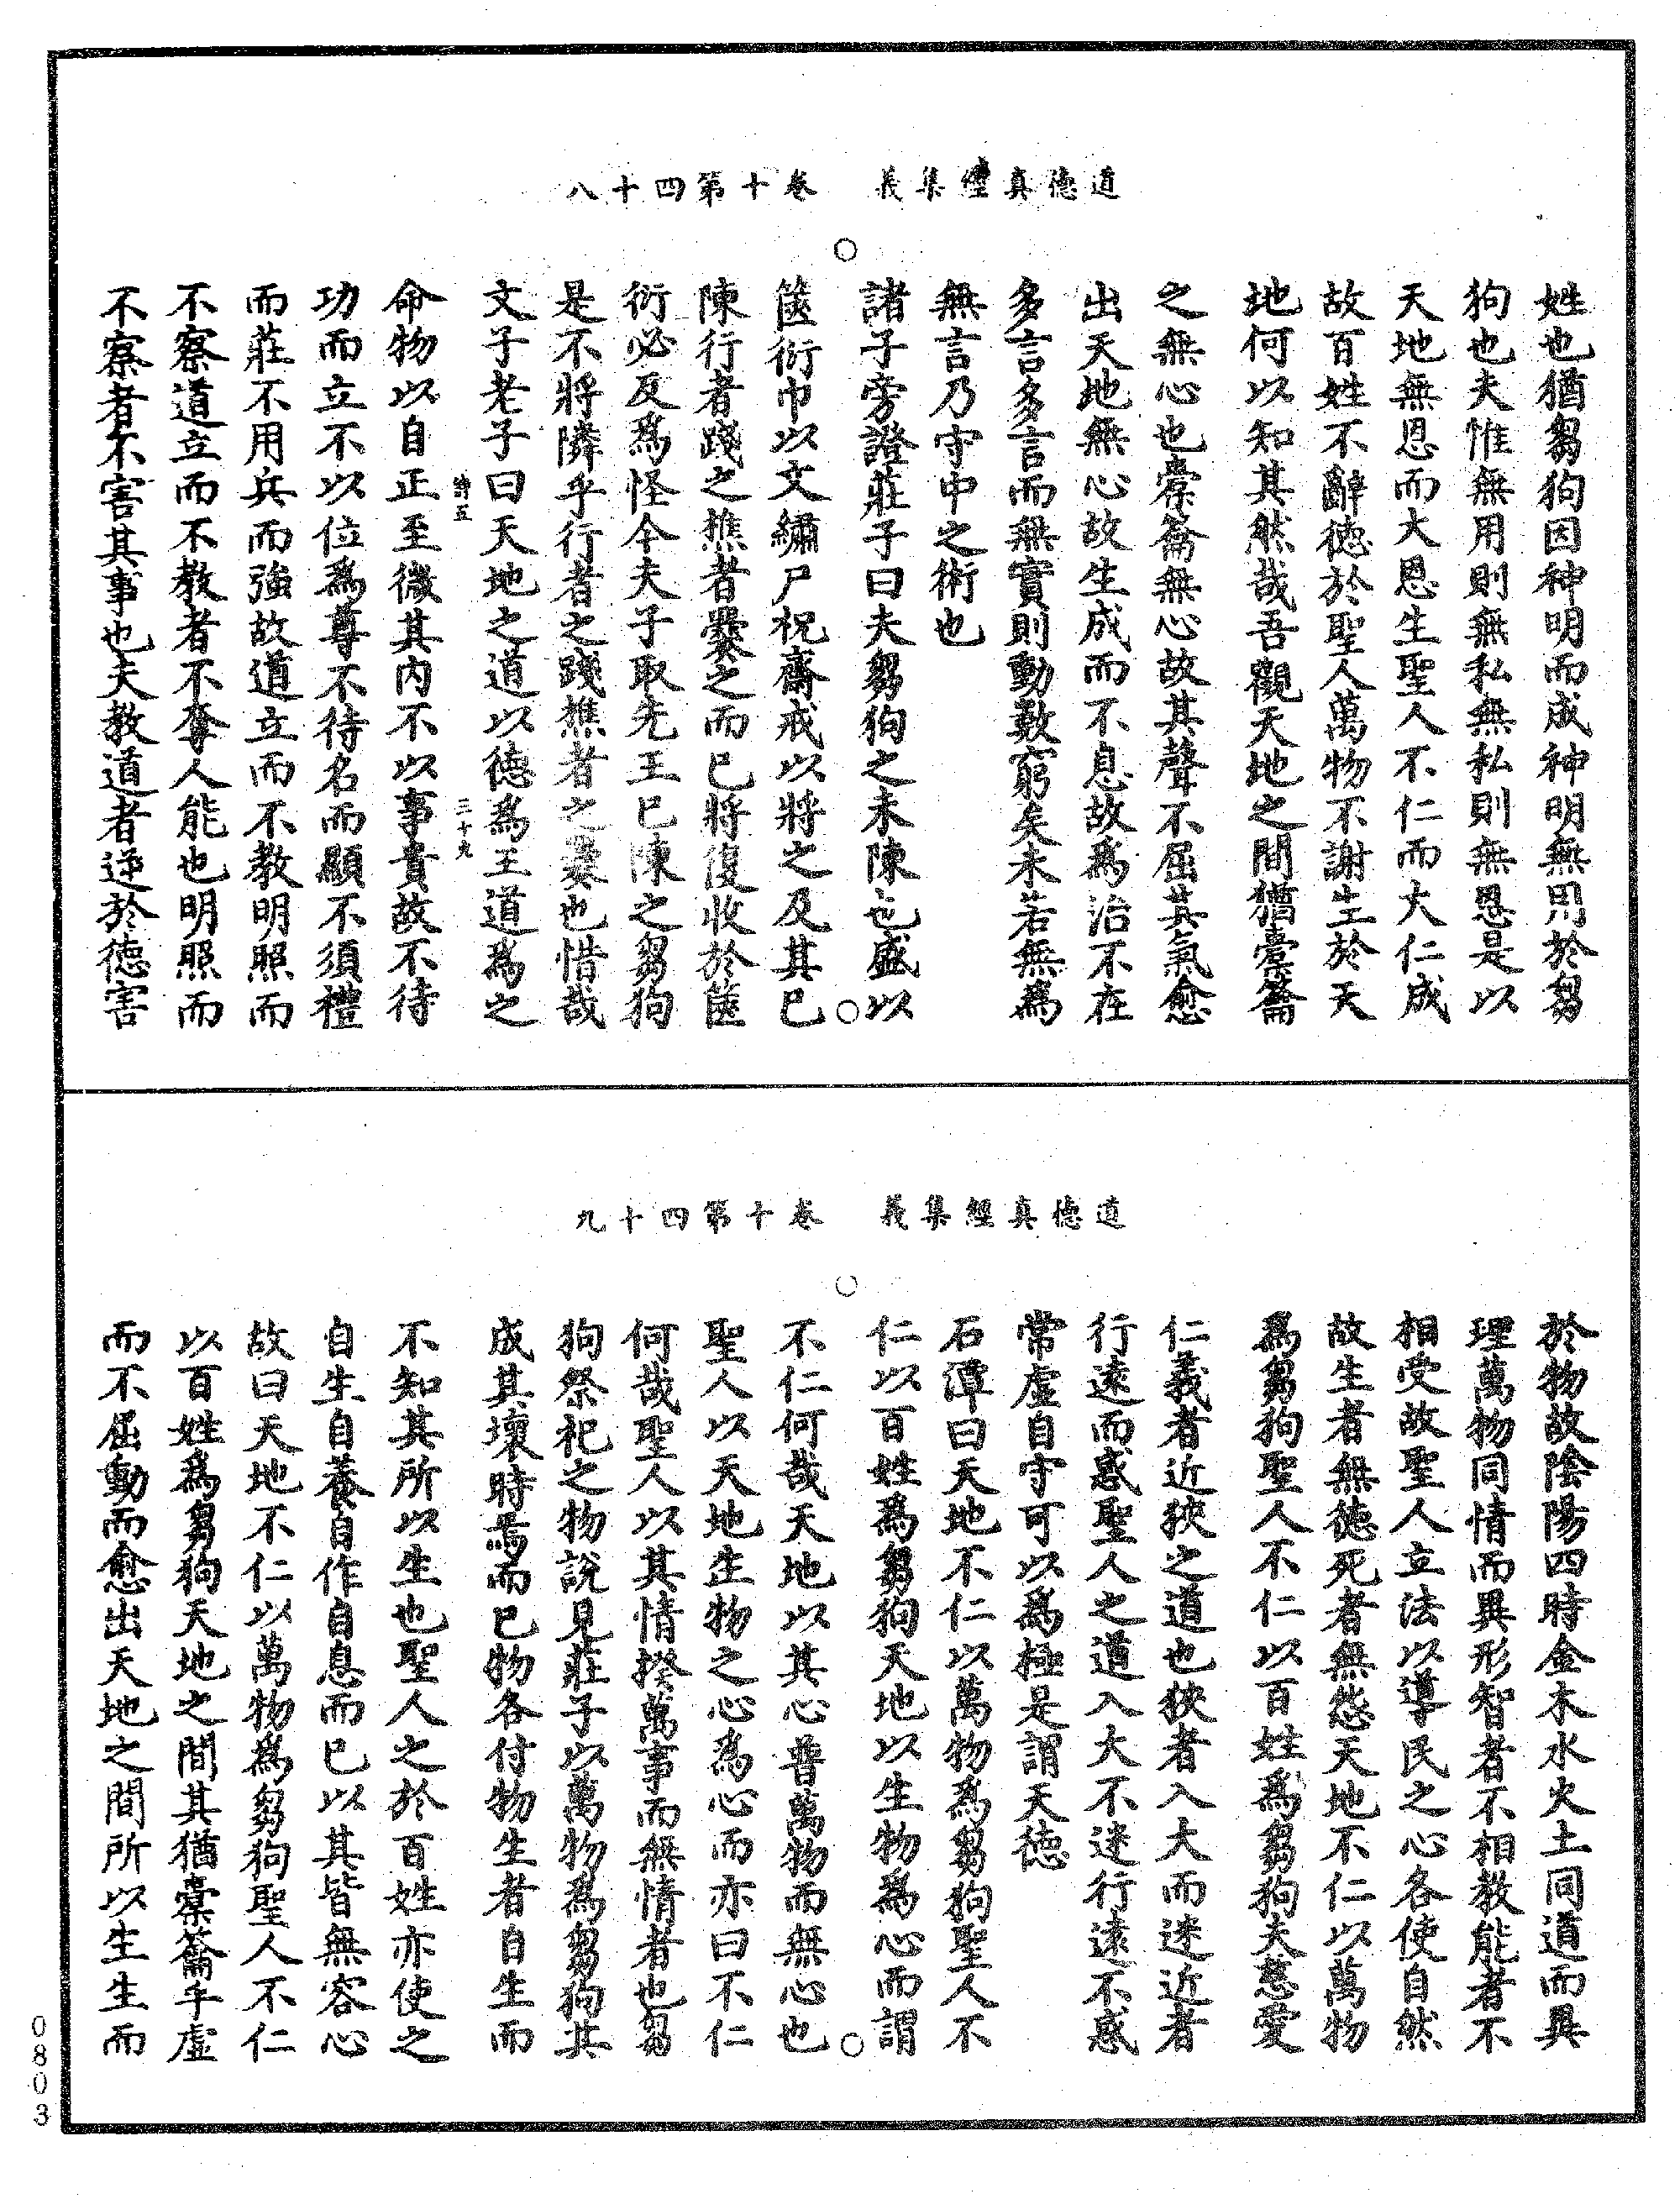 道德真經集義　卷十第四十八
姓也猶芻狗因神明而成神明無用於芻
狗也夫惟無用則無私無私則無恩是以
天地無恩而大恩生聖人不仁而大仁成
故百姓不辭德於聖人萬物不謝生於天
地何以知其然哉吾觀天地之間猶橐籥
之無心也橐籥無心故其聲不屈其氣愈
出天地無心故生成而不息故爲治不在
多言多言而無實則動數窮矣未若無爲
無言乃守中之術也
諸子旁證莊子曰夫芻狗之未陳也盛以
篋衍巾以文繡尸祝齋戒以將之及其已
陳行者踐之樵者爨之而已將復收於篋
衍必反爲怪今夫子取先王已陳之芻狗
是不將隣乎行者之踐樵者之爨也惜哉
文子老子曰天地之道以德爲王道爲之
詩五
三十九
命物以自正至微其內不以事貴故不待
功而立不以位爲尊不待名而顯不須禮
而莊不用兵而強故道立而不教明照而
不察道立而不教者不奪人能也明照而
不察者不害其事也夫教道者逆於德害
道德真經集義　卷十第四十九
於物故陰陽四時金木水火土同道而異
理萬物同情而異形智者不相教能者不
相受故聖人立法以導民之心各使自然
故生者無德死者無怨天地不仁以萬物
爲芻狗聖人不仁以百姓爲芻狗夫慈愛
仁義者近狹之道也狹者入大而迷近者
行遠而惑聖人之道入大不迷行遠不惑
常虛自守可以爲極是謂天德
石潭曰天地不仁以萬物爲芻狗聖人不
仁以百姓爲芻狗天地以生物爲心而謂
不仁何哉天地以其心普萬物而無心也
聖人以天地生物之心爲心而亦曰不仁
何哉聖人以其情揆萬事而無情者也芻
狗祭祀之物說見莊子以萬物爲芻狗其
成其壞時焉而已物各付物生者自生而
不知其所以生也聖人之於百姓亦使之
自生自養自作自息而已以其皆無容心
故曰天地不仁以萬物爲芻狗聖人不仁
以百姓爲芻狗天地之間其猶橐籥乎虛
而不屈動而愈出天地之間所以生生而
0803